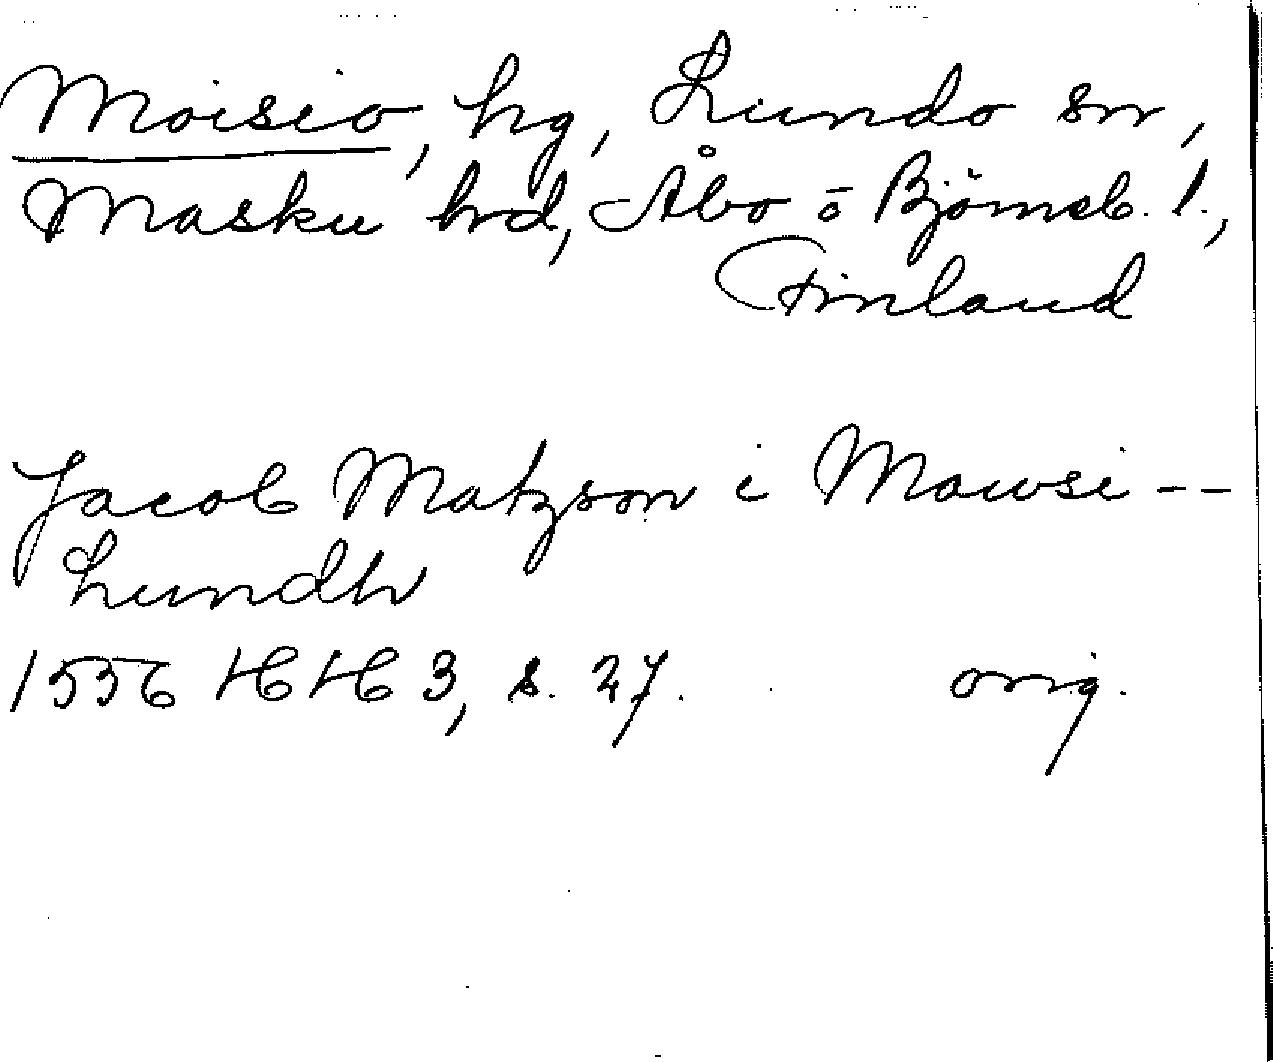 Moisio, hg, Lundo sn,
Masku hd, Åbo o Björneb. l.,
Finland
Jacob Matzson i Mawsi --
Lundh
1556 HH 3, s. 27. orig.